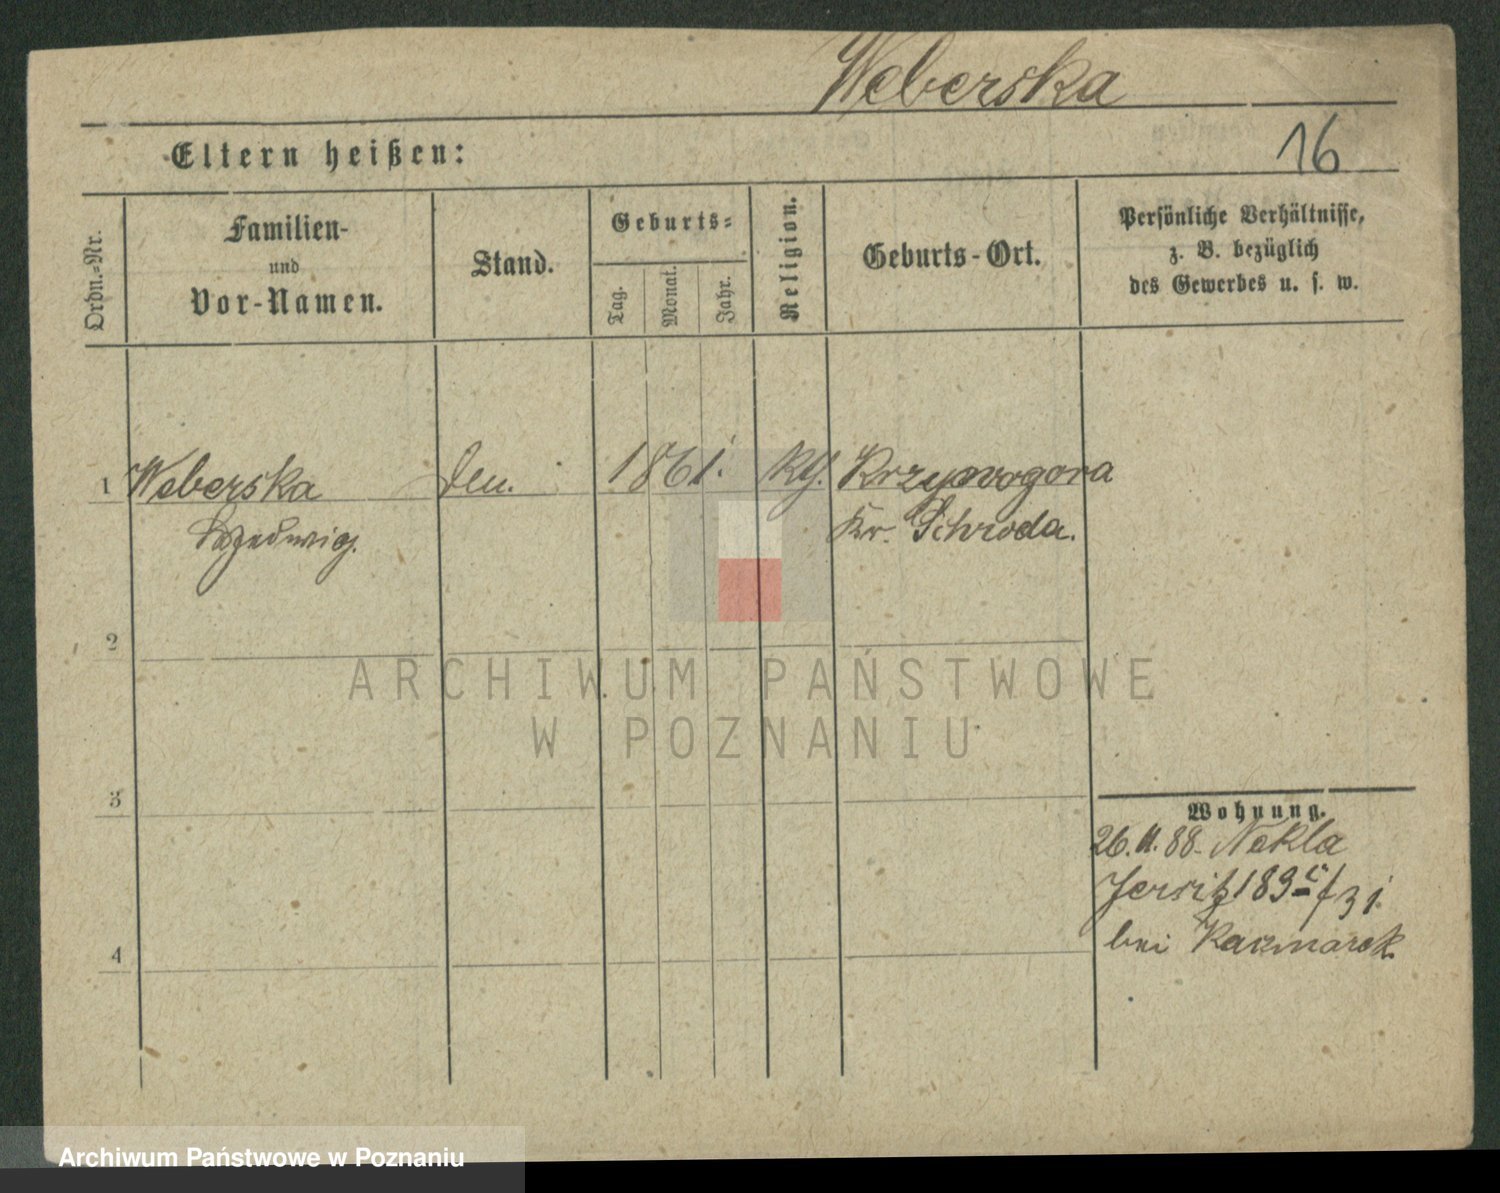 Weberska
Eltern heißen:
16
Ordn.-Nr.
Familien-
und
Vor-Namen.
Stand.
Geburts-
Tag.
Monat.
Jahr.
Religion.
Geburts-Ort.
Persönliche Verhältnisse,
z. B. bezüglich
des Gewerbes u. s. w.
1 Weberska 1861. Krzywogora
Hedwig. Kr. Schroda.
2
3
4
Wohnung.
26. 11. 88. Nekla
Jersitz 189
bei Kaczmarek
ARCHIWUM PAŃSTWOWE
W POZNANIU
Archiwum Państwowe w Poznaniu